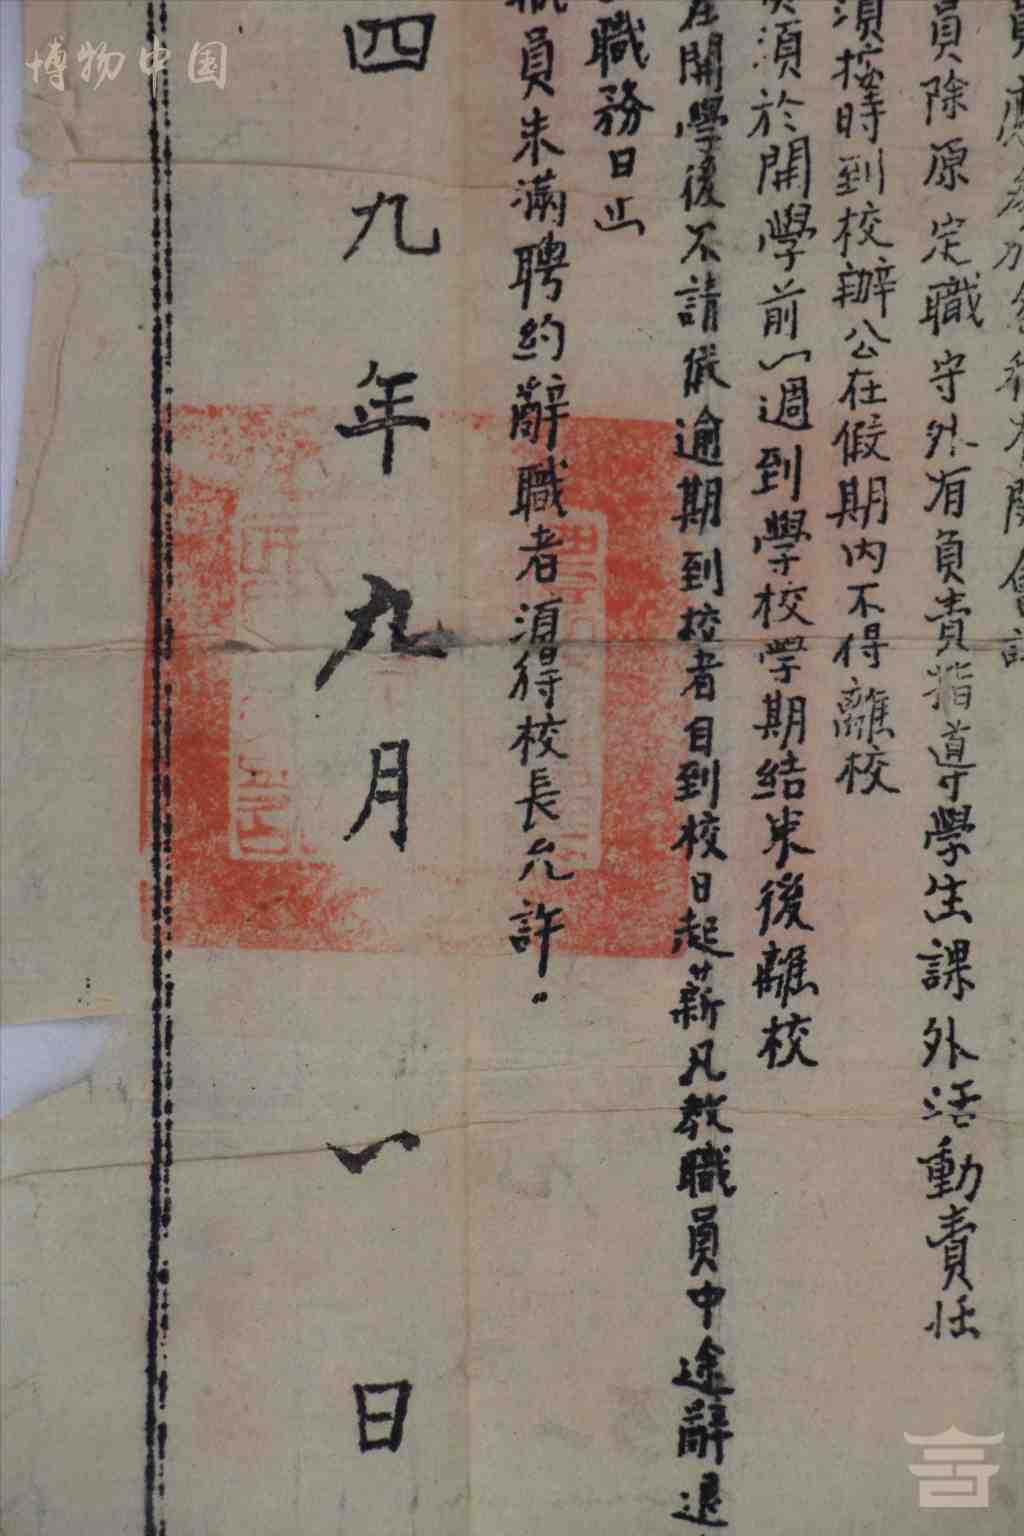 博物中国
員應參加各種有關會議
員除原定職守外有負責指導學生課外活動責任
須按時到校辦公在假期內不得離校
須於開學前一週到學校學期結束後離校
在開學後不請假逾期到校者自到校日起薪凡教職員中途辭退
職務日止
職員未滿聘約辭職者須得校長允許。
四九年九月一日